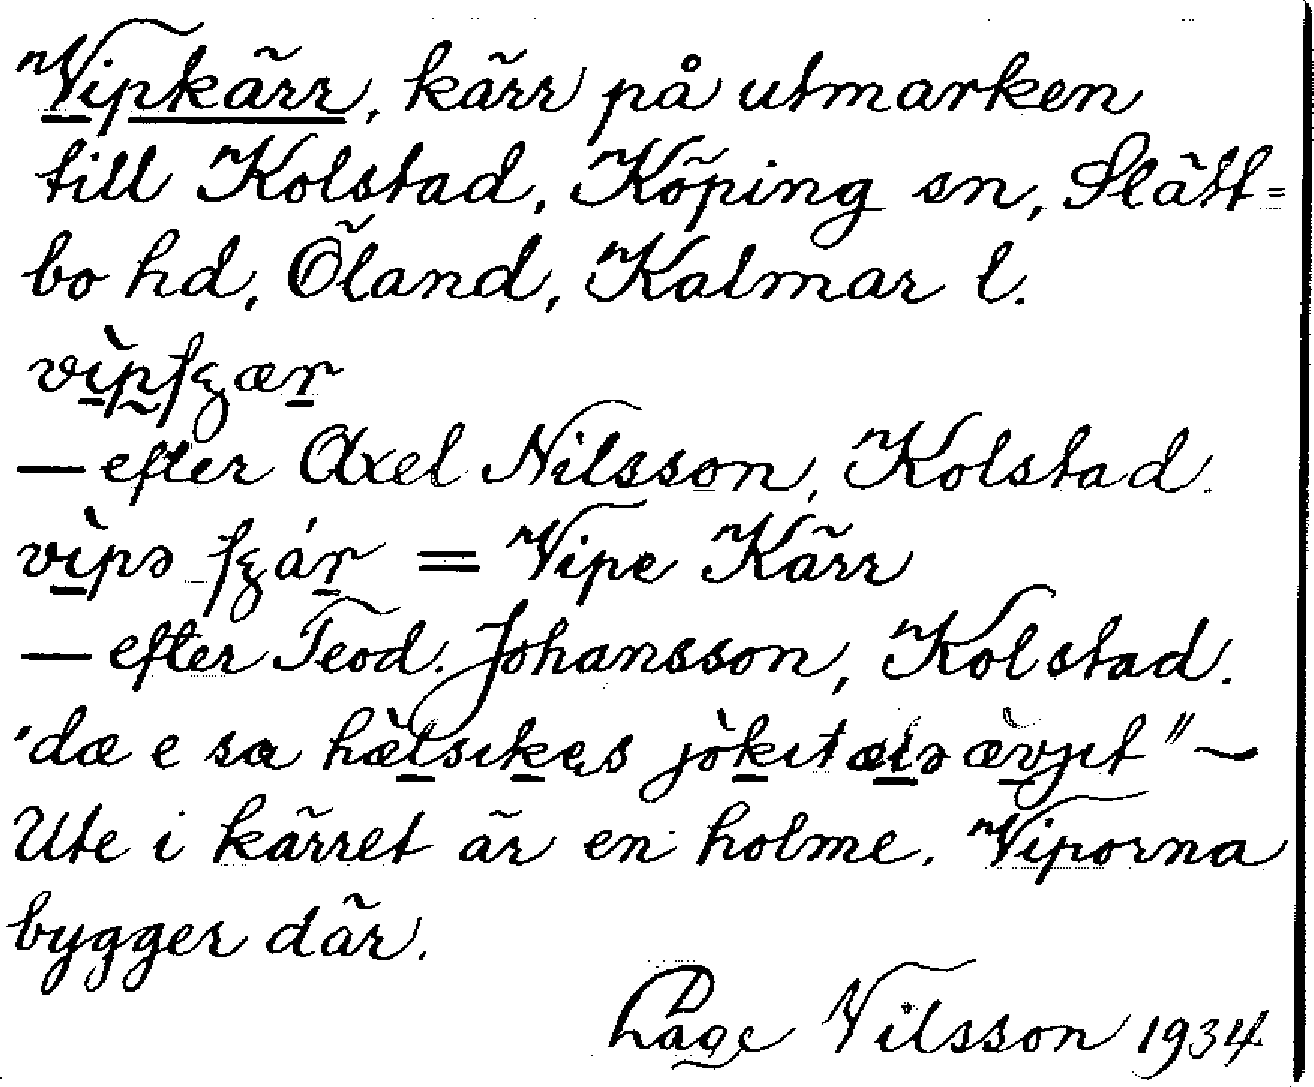 Vipkärr, kärr på utmarken
till Kolstad, Köping sn, Slätt=
bo hd, Öland, Kalmar l.
— efter Axel Nilsson, Kolstad.
= Vipe Kärr
— efter Teod. Johansson, Kolstad.
"dæ e sa
Ute i kärret är en holme. Viporna
bygger där.
Åage Nilsson 1934